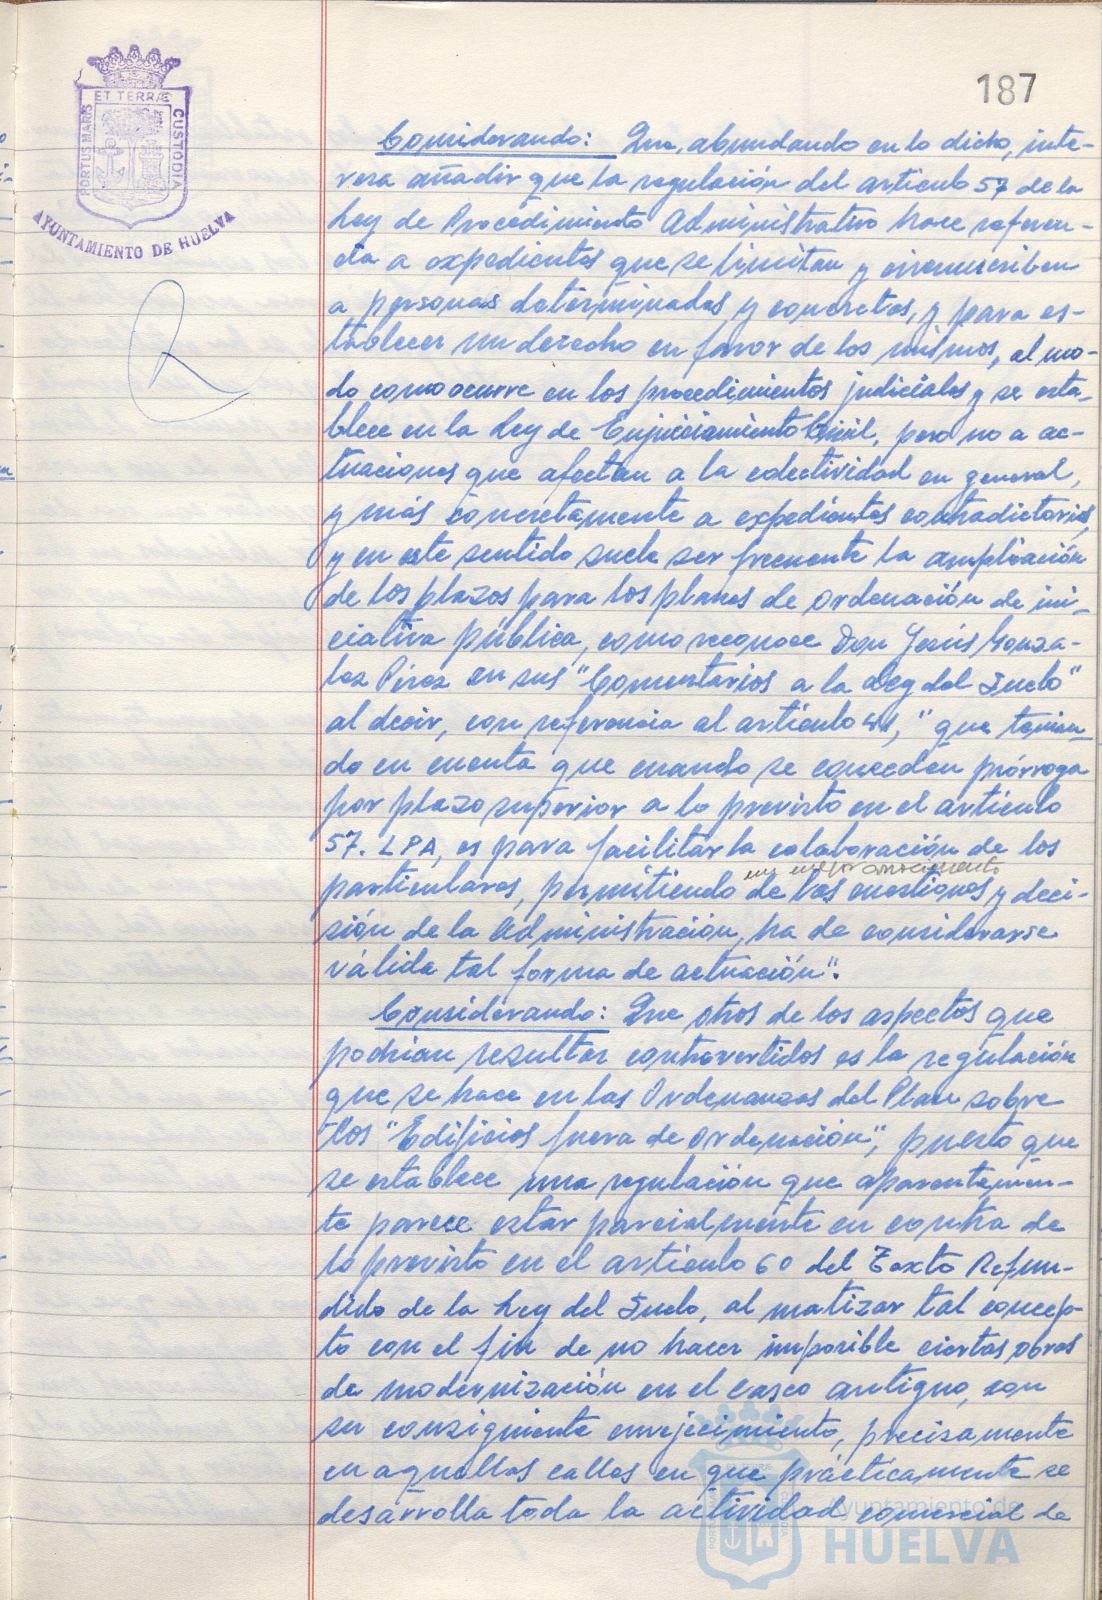 187
PORTUS MARIS ET TERRÆ CUSTODIA
AYUNTAMIENTO DE HUELVA
Considerando: Que, abundando en lo dicho, inte-
resa añadir que la regulación del artículo 57 de la
Ley de Procedimiento Administrativo hace referen-
cia a expedientes que se limitan y circunscriben
a personas determinadas y concretas, y para es-
tablecer un derecho en favor de los mismos, al mo-
do como ocurre en los procedimientos judiciales y se esta-
blece en la Ley de Enjuiciamiento Civil, pero no a ac-
tuaciones que afectan a la colectividad en general,
y más concretamente a expedientes contradictorios,
y en este sentido suele ser frecuente la ampliación
de los plazos para los planes de ordenación de ini-
ciativa pública, como reconoce Don Jesús Gonza-
lez Pérez en sus "Comentarios a la Ley del Suelo"
al decir, con referencia al artículo 41, "que tenien-
do en cuenta que cuando se conceden prórroga
por plazo superior a lo previsto en el artículo
57. LPA, es para facilitar la colaboración de los
un mejor conocimiento
particulares, permitiendo de las cuestiones y deci-
sión de la Administración, ha de considerarse
válida tal forma de actuación".
Considerando: Que otros de los aspectos que
podrían resultar controvertidos es la regulación
que se hace en las Ordenanzas del Plan sobre
los "Edificios fuera de Ordenación", puesto que
se establece una regulación que aparentemen-
te parece estar parcialmente en contra de
lo previsto en el artículo 60 del Texto Refun-
dido de la Ley del Suelo, al matizar tal concep-
to con el fin de no hacer imposible ciertas obras
de modernización en el casco antiguo, con
su consiguiente envejecimiento, precisamente
en aquellas calles en que prácticamente se
desarrolla toda la actividad comercial de
Ayuntamiento de
HUELVA